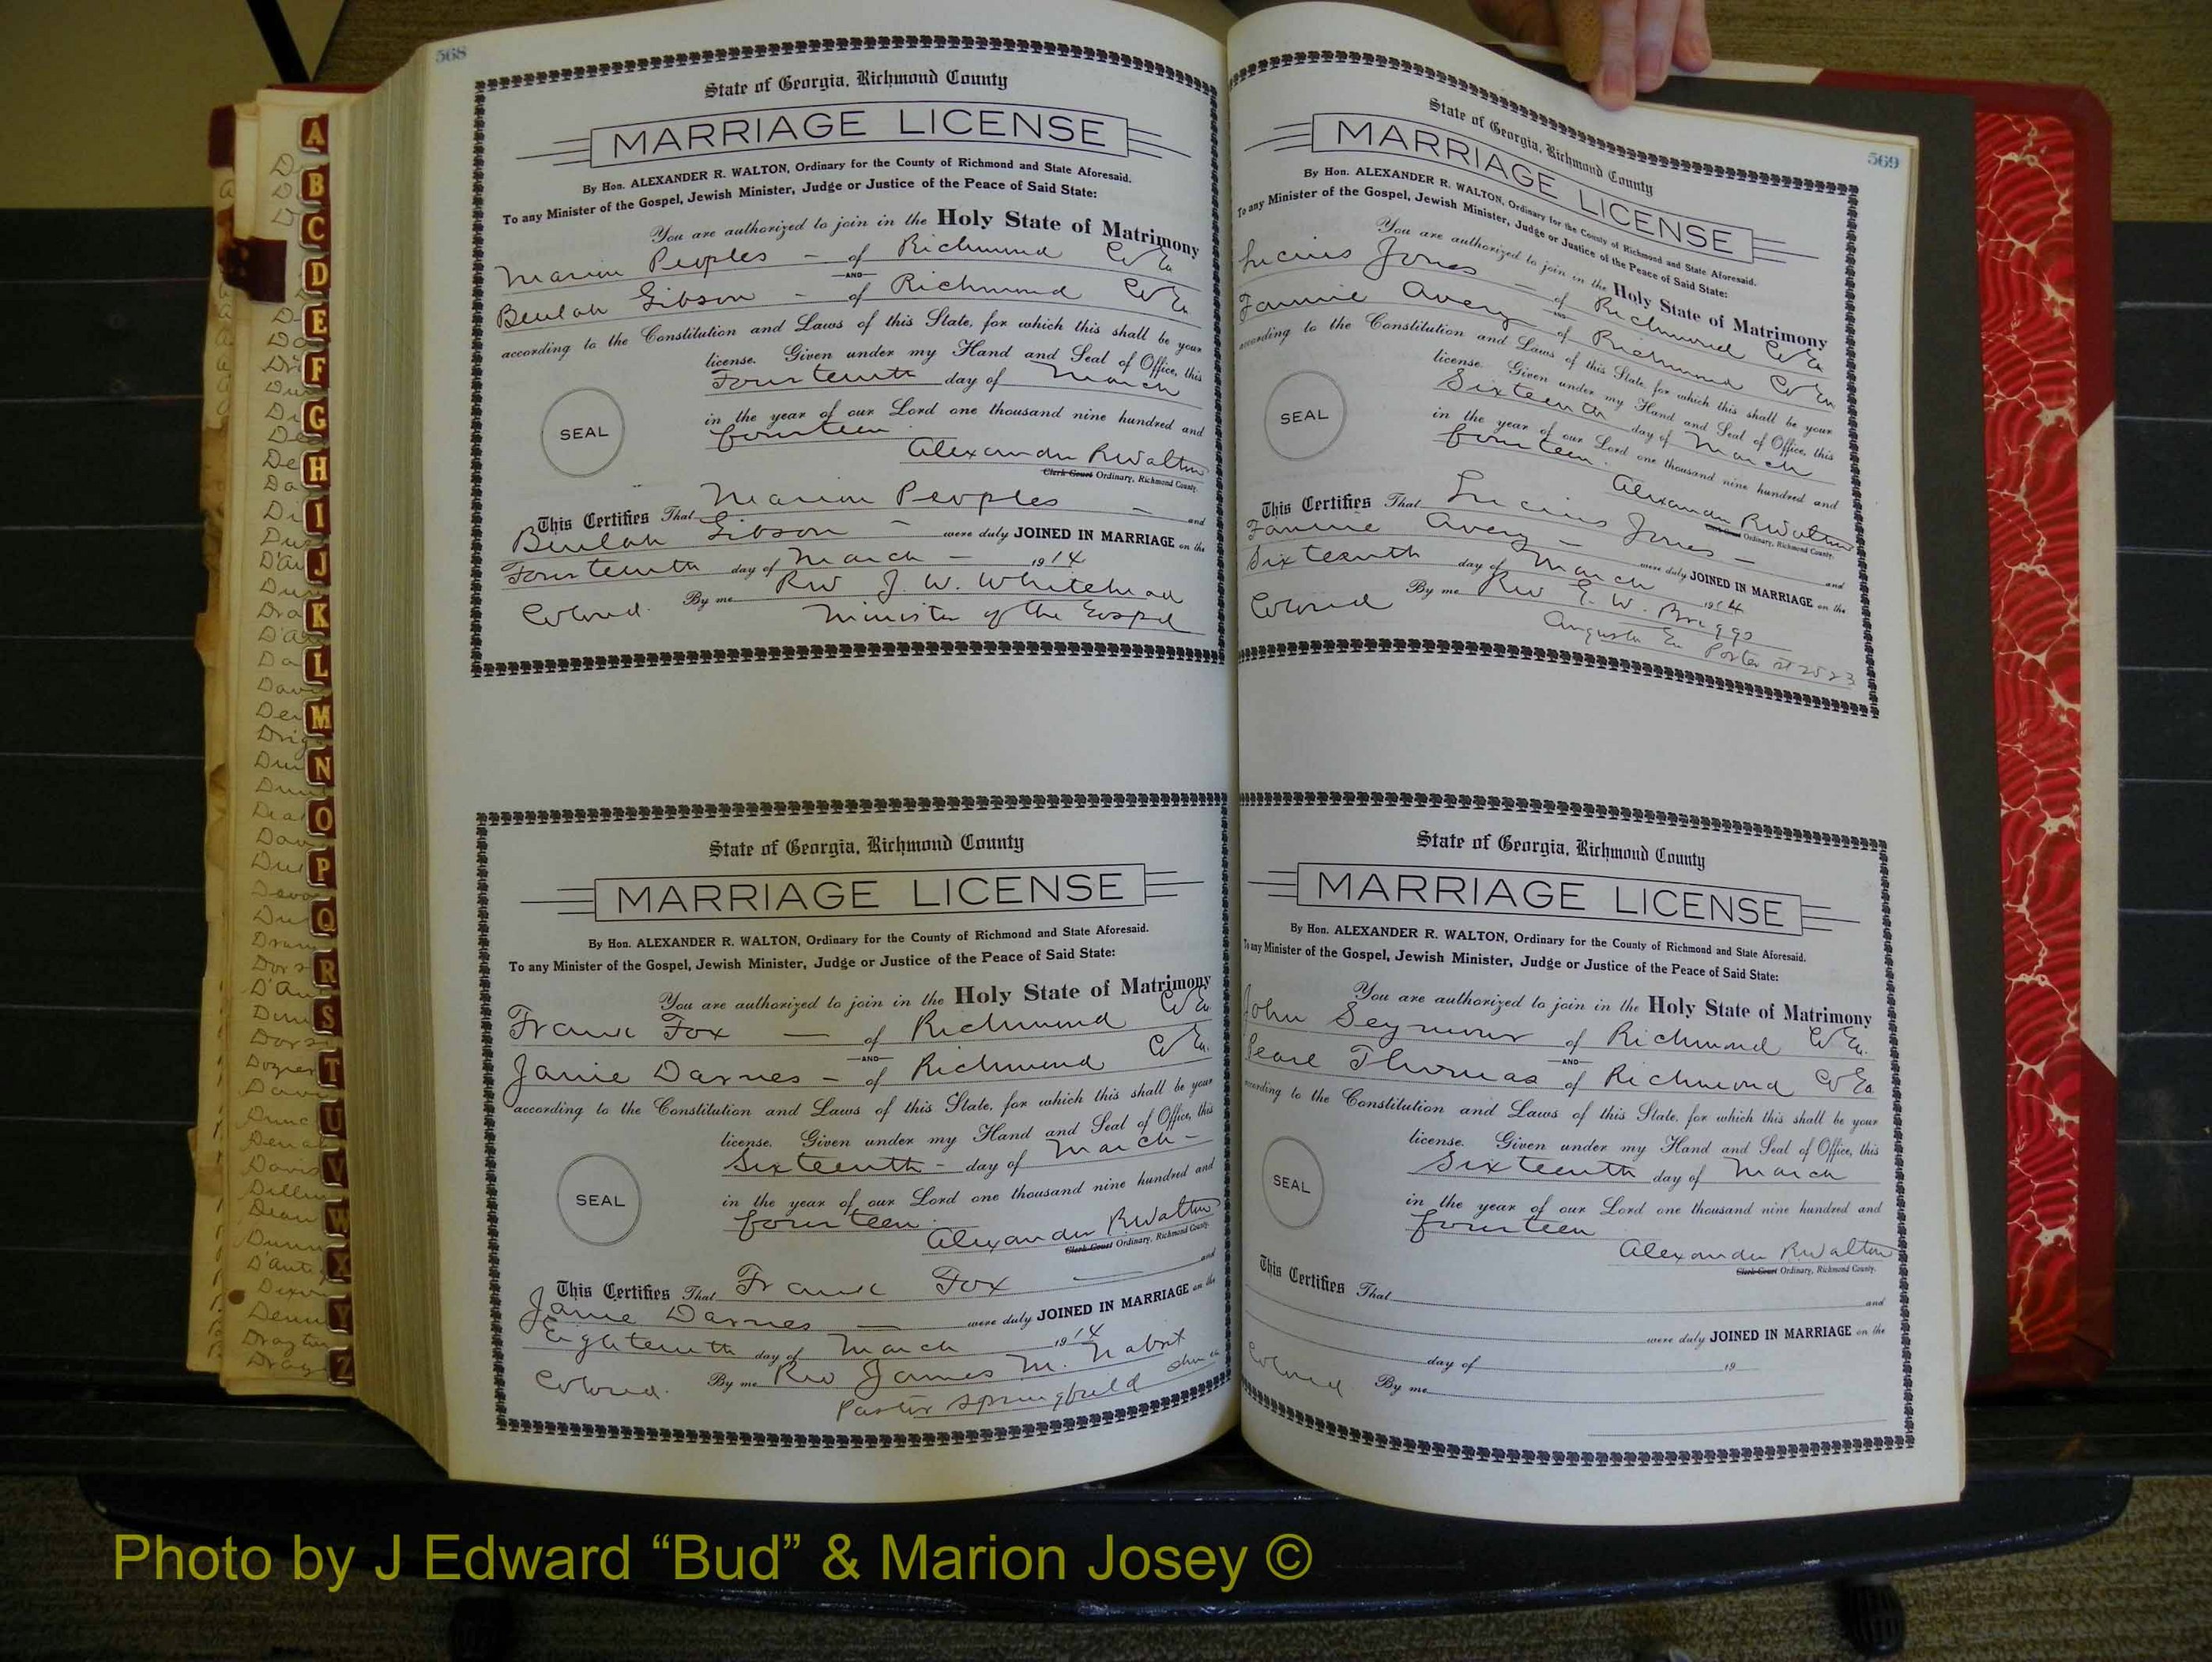 568
State of Georgia, Richmond County
MARRIAGE LICENSE
By Hon. ALEXANDER R. WALTON, Ordinary for the County of Richmond and State Aforesaid.
To any Minister of the Gospel, Jewish Minister, Judge or Justice of the Peace of Said State:
You are authorized to join in the Holy State of Matrimony
Marion Peoples - of Richmond Co Ga
AND
Beulah Gibson - of Richmond Co Ga
according to the Constitution and Laws of this State, for which this shall be your
license. Given under my Hand and Seal of Office, this
Fourteenth day of March
in the year of our Lord one thousand nine hundred and
fourteen.
SEAL
Alexander R Walton
Clerk Court Ordinary, Richmond County.
This Certifies That Marion Peoples - and
Beulah Gibson - were duly JOINED IN MARRIAGE on the
Fourteenth day of March - 1914
Colored. By me Rev J. W. Whitehead
Minister of the Gospel
State of Georgia, Richmond County
MARRIAGE LICENSE
By Hon. ALEXANDER R. WALTON, Ordinary for the County of Richmond and State Aforesaid.
To any Minister of the Gospel, Jewish Minister, Judge or Justice of the Peace of Said State:
You are authorized to join in the Holy State of Matrimony
Frank Fox - of Richmond Co Ga
AND
Janie Darnes - of Richmond Co Ga.
according to the Constitution and Laws of this State, for which this shall be your
license. Given under my Hand and Seal of Office, this
Sixteenth - day of March -
in the year of our Lord one thousand nine hundred and
fourteen.
SEAL
Alexander R Walton
Clerk Court Ordinary, Richmond County.
This Certifies That Frank Fox - and
Janie Darnes - were duly JOINED IN MARRIAGE on the
Eighteenth day of March 1914
Colored. By me Rev James M. Nabrit
Pastor Springfield Church
569
State of Georgia, Richmond County
MARRIAGE LICENSE
By Hon. ALEXANDER R. WALTON, Ordinary for the County of Richmond and State Aforesaid.
To any Minister of the Gospel, Jewish Minister, Judge or Justice of the Peace of Said State:
You are authorized to join in the Holy State of Matrimony
Lucius Jones - of Richmond Co Ga
AND
Fannie Avery - of Richmond Co Ga
according to the Constitution and Laws of this State, for which this shall be your
license. Given under my Hand and Seal of Office, this
Sixteenth day of March
in the year of our Lord one thousand nine hundred and
fourteen.
SEAL
Alexander R Walton
Clerk Court Ordinary, Richmond County.
This Certifies That Lucius Jones - and
Fannie Avery - were duly JOINED IN MARRIAGE on the
Sixteenth day of March 1914
Colored By me Rev E. W. Briggs
Augusta Ga Porter st 2523
State of Georgia, Richmond County
MARRIAGE LICENSE
By Hon. ALEXANDER R. WALTON, Ordinary for the County of Richmond and State Aforesaid.
To any Minister of the Gospel, Jewish Minister, Judge or Justice of the Peace of Said State:
You are authorized to join in the Holy State of Matrimony
John Seymour of Richmond Co Ga.
AND
Pearl Thomas of Richmond Co Ga
according to the Constitution and Laws of this State, for which this shall be your
license. Given under my Hand and Seal of Office, this
Sixteenth day of March
in the year of our Lord one thousand nine hundred and
fourteen
SEAL
Alexander R Walton
Clerk Court Ordinary, Richmond County.
This Certifies That and
were duly JOINED IN MARRIAGE on the
day of 19
Colored By me
A
B
C
D
E
F
G
H
I
J
K
L
M
N
O
P
Q
R
S
T
U
V
W
X
Y
Z
Photo by J Edward “Bud” & Marion Josey ©